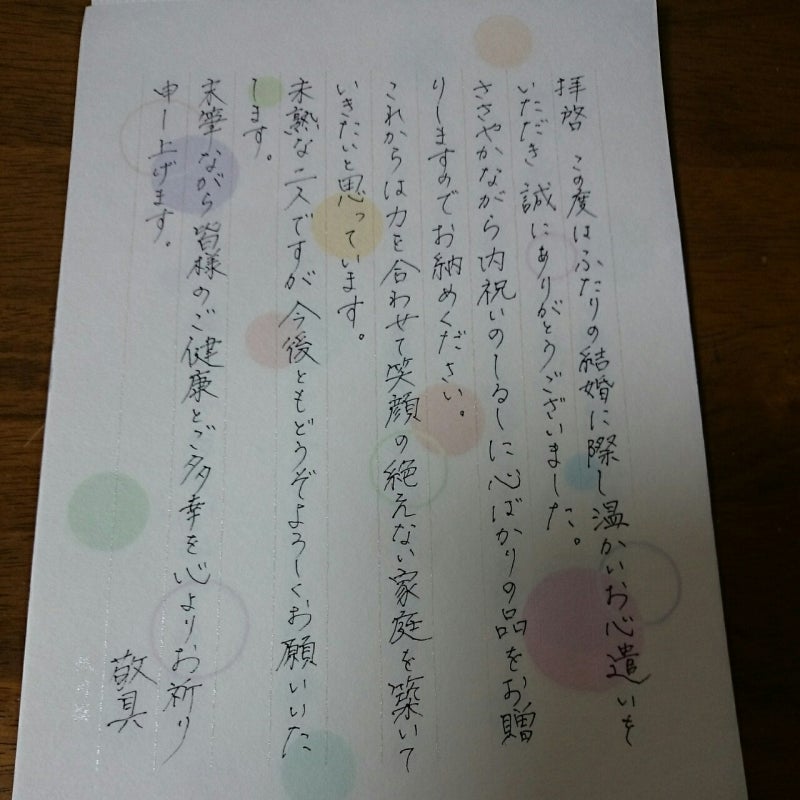 拝啓 この度はふたりの結婚に際し温かいお心遣いを
いただき誠にありがとうございました。
ささやかながら内祝いのしるしに心ばかりの品をお贈
りしますのでお納めください。
これからは力を合わせて笑顔の絶えない家庭を築いて
いきたいと思っています。
未熟な二人ですが今後ともどうぞよろしくお願いいた
します。
末筆ながら皆様のご健康とご多幸を心よりお祈り
申し上げます。
敬具